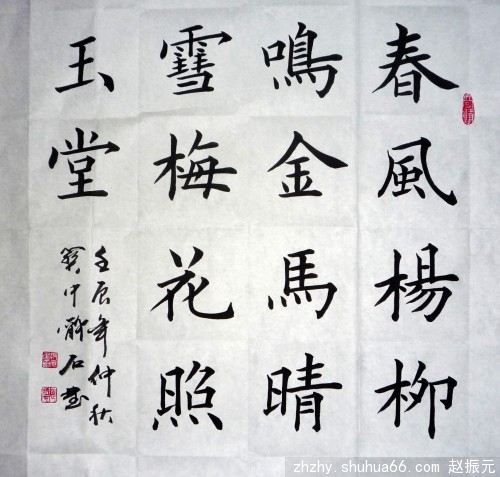 春風楊柳
鳴金馬晴
雪梅花照
玉堂
壬辰年仲秋
zhzhy.shuhua66.com 赵振元